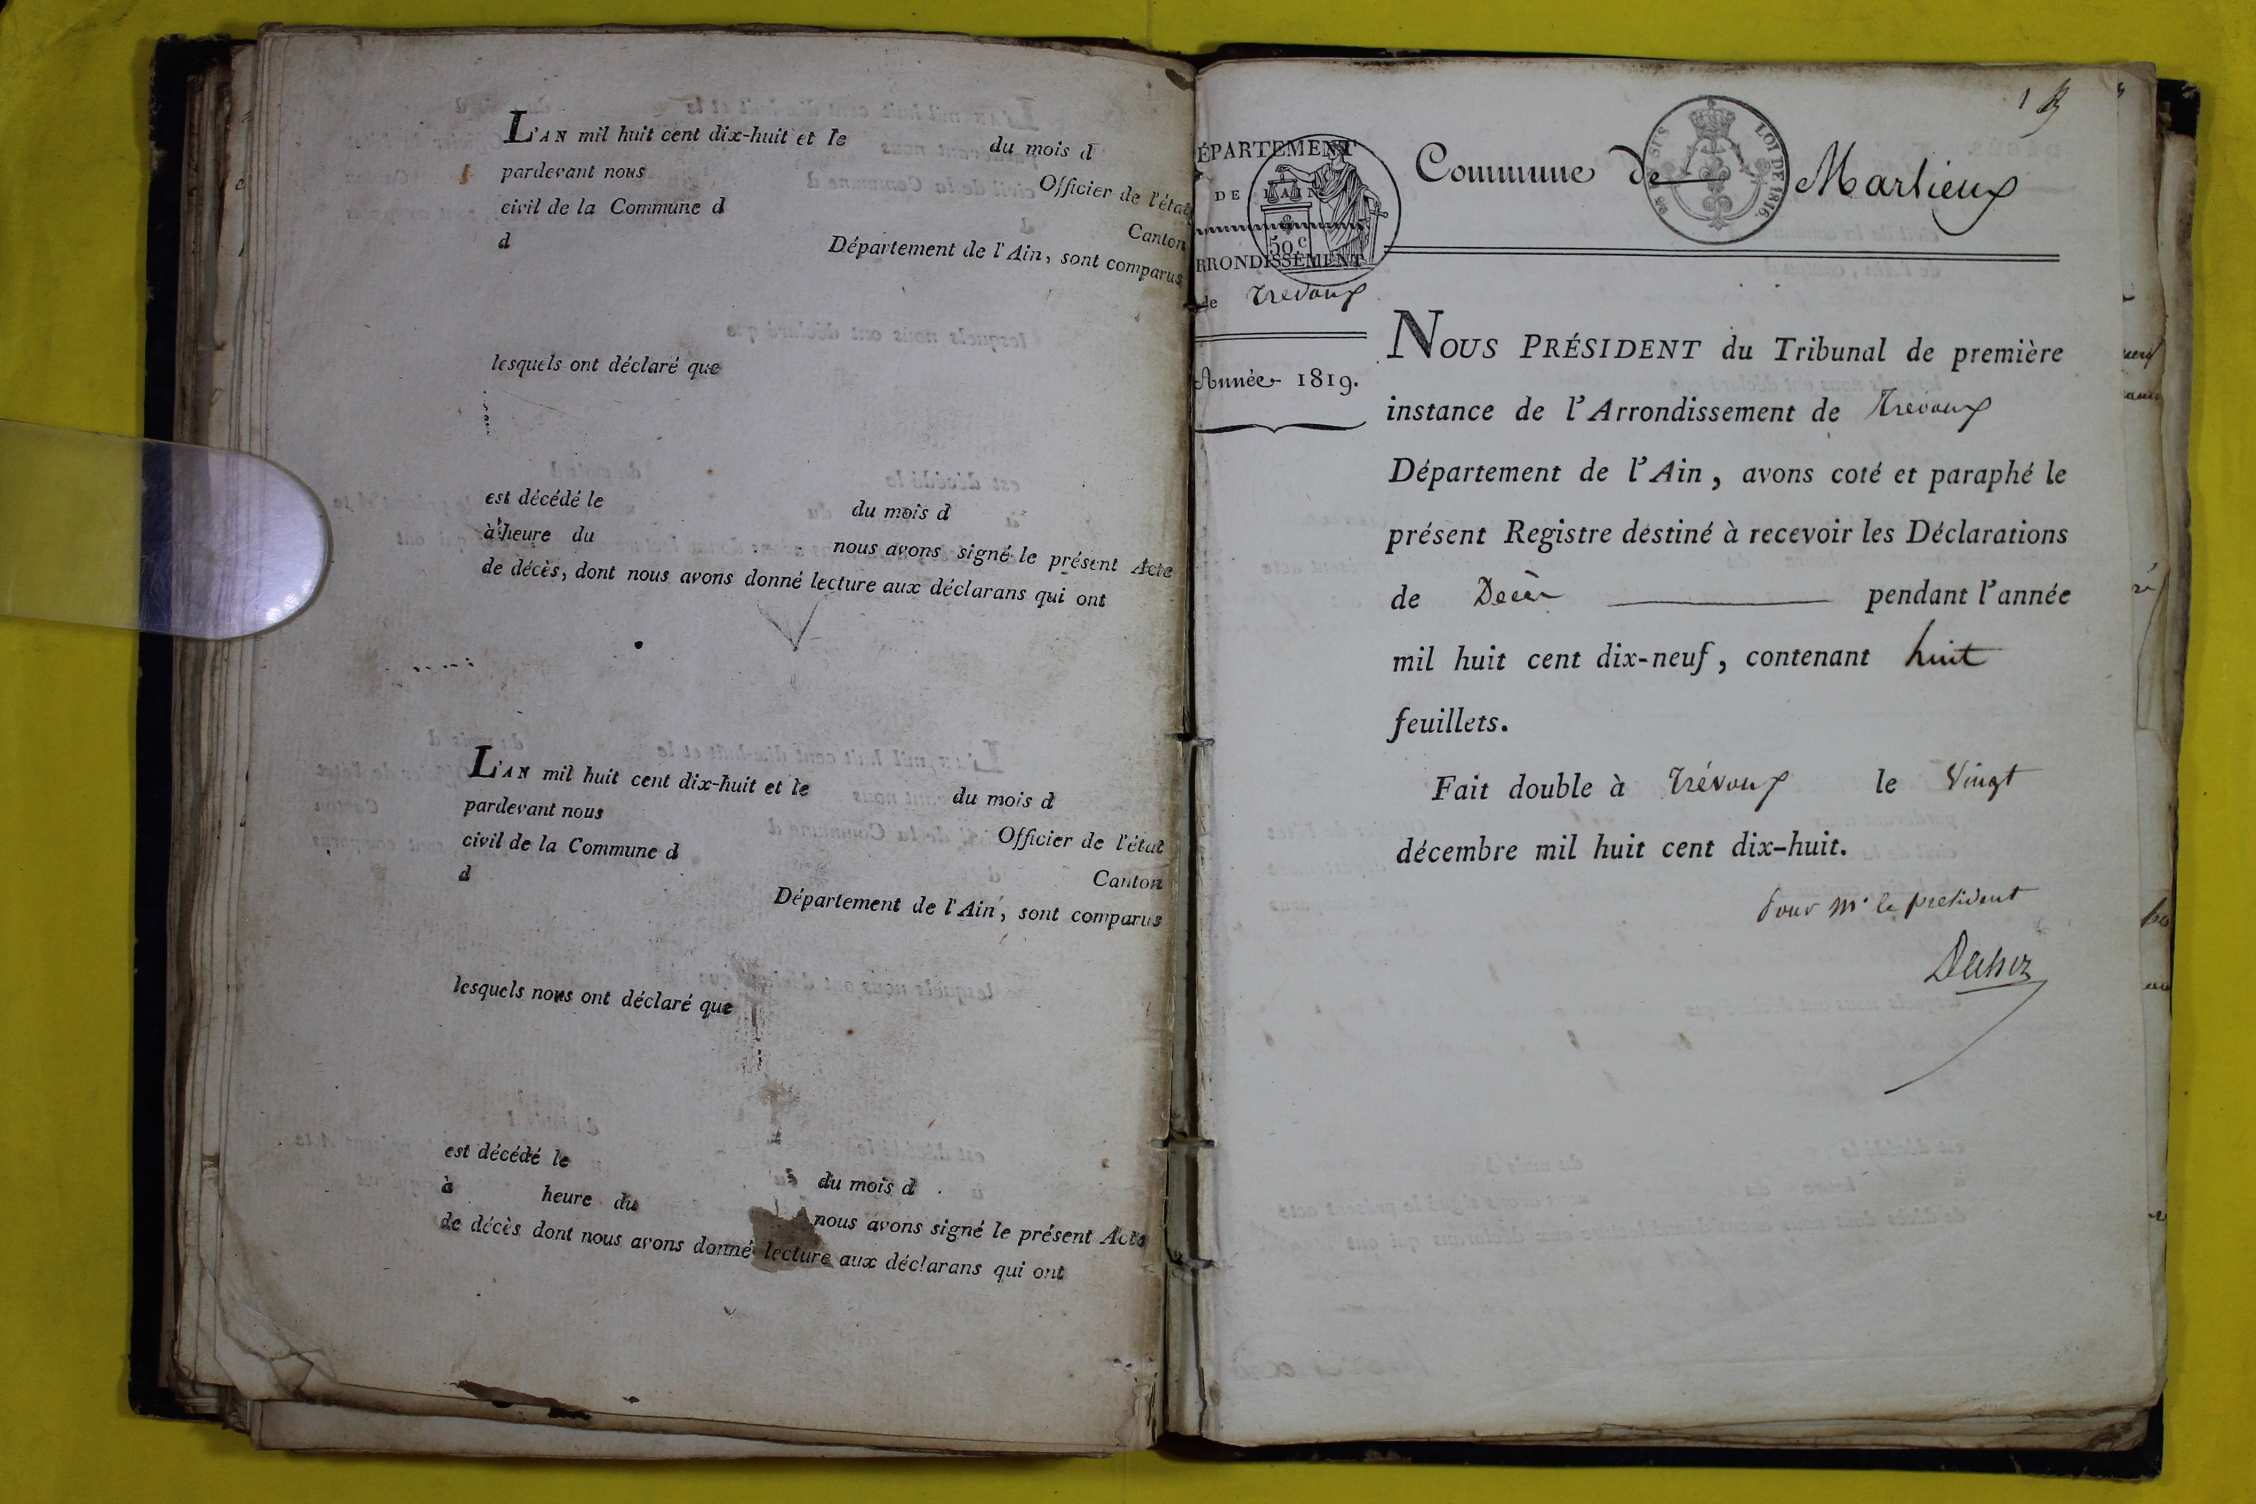 L'AN mil huit cent dix-huit et le du mois d
pardevant nous Officier de l'état
civil de la Commune d Canton
d Département de l'Ain, sont comparus
lesquels ont déclaré que
est décédé le du mois d
à heure du nous avons signé le présent Acte
de décès, dont nous avons donné lecture aux déclarans qui ont
L'AN mil huit cent dix-huit et le du mois d
pardevant nous Officier de l'état
civil de la Commune d Canton
d Département de l'Ain, sont comparus
lesquels nous ont déclaré que
est décédé le du mois d
à heure du nous avons signé le présent Acte
de décès dont nous avons donné lecture aux déclarans qui ont
1
ÉPARTEMENT
DE L'AIN
50c
RRONDISSEMENT
de Trevoux
Année 1819.
Commune de Marlieux
LOI DE 1816.
NOUS PRÉSIDENT du Tribunal de première
instance de l'Arrondissement de Trevoux
Département de l'Ain, avons coté et paraphé le
présent Registre destiné à recevoir les Déclarations
de Décès pendant l'année
mil huit cent dix-neuf, contenant huit
feuillets.
Fait double à Trévoux le Vingt
décembre mil huit cent dix-huit.
Pour Mr le president